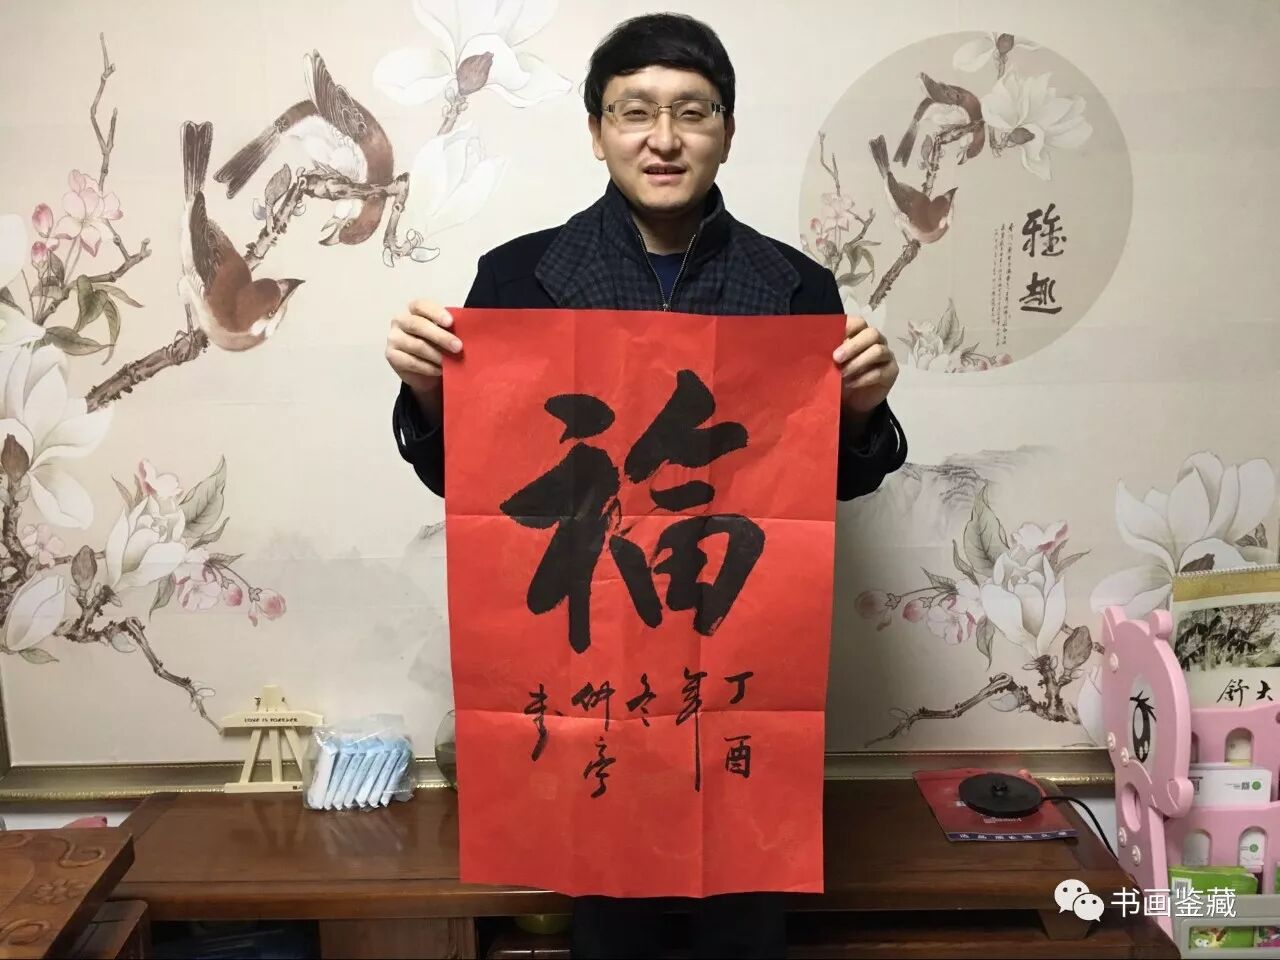 福
丁酉
年
冬
竹亭
书
雅趣
LOVE IS FOREVER
舒大
书画鉴藏